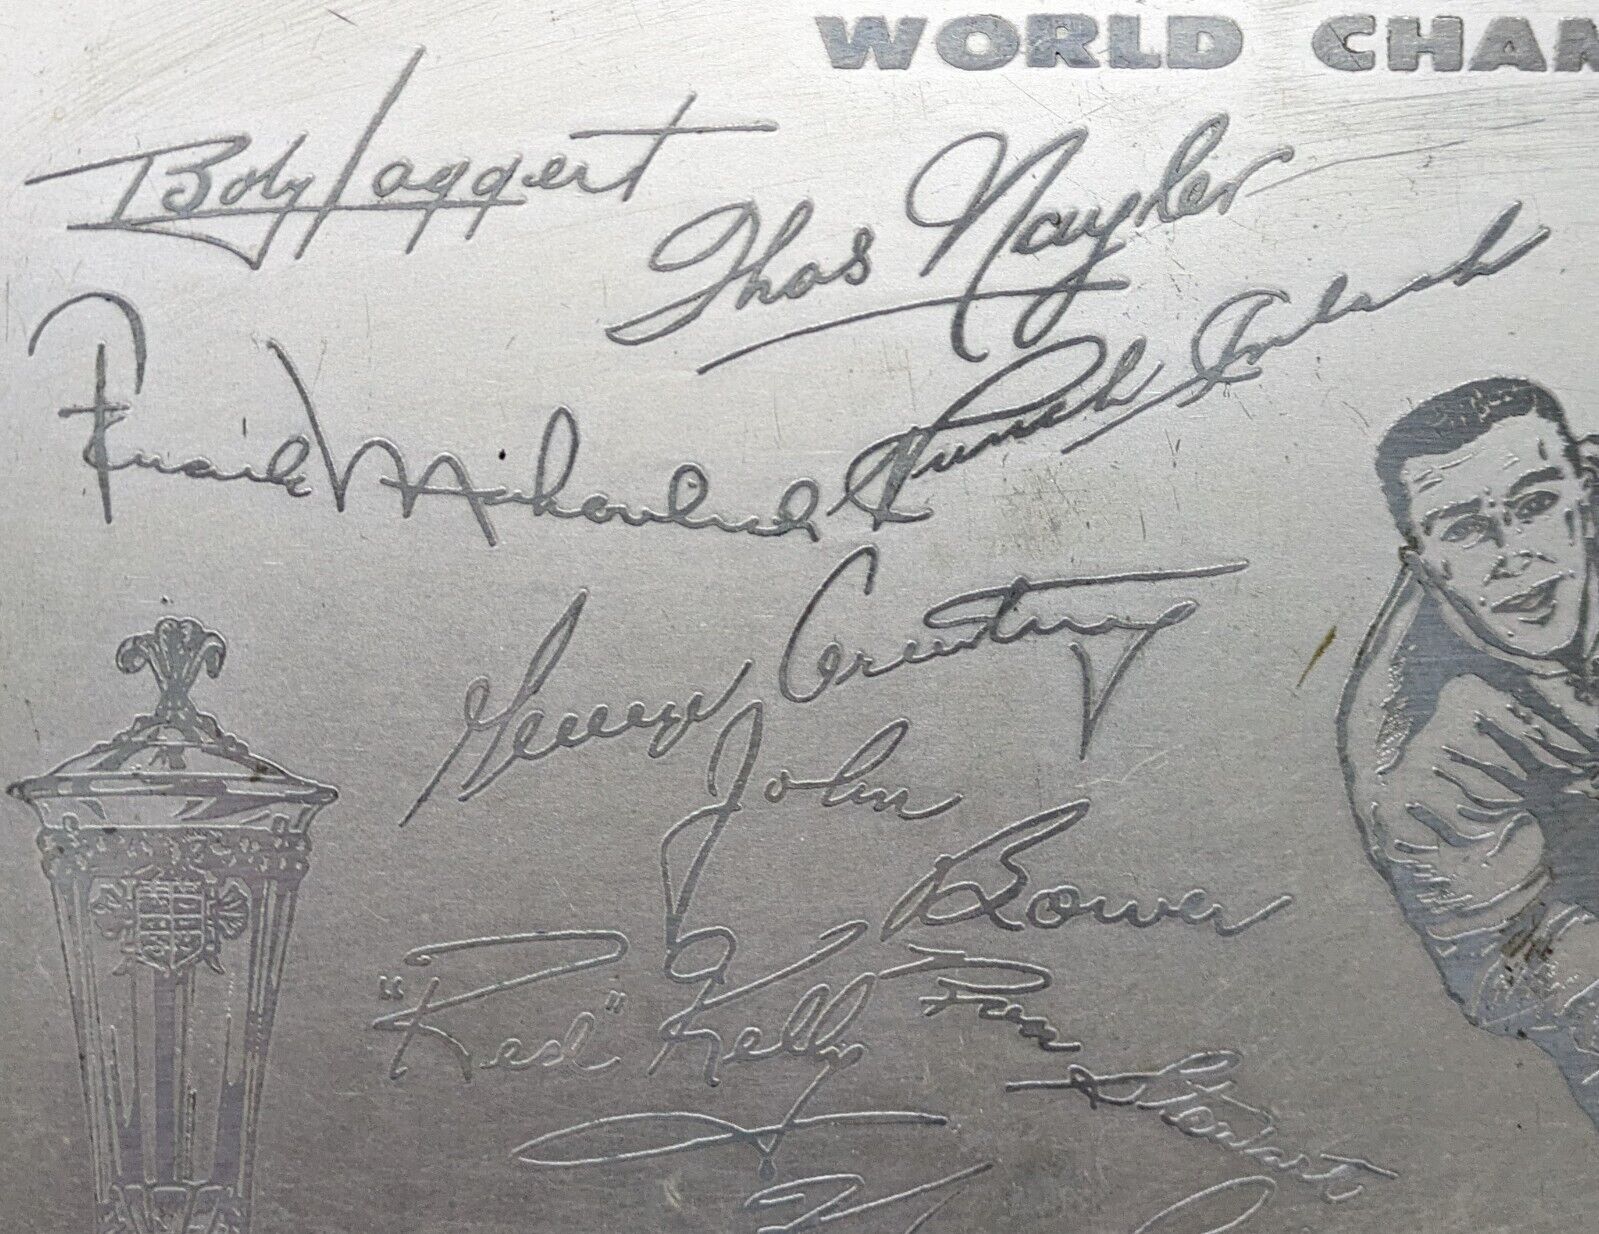 WORLD CHAM
Bob Haggert
Thos Nayler
Frank Mahovlich
George Armstrong
John Bower
"Red" Kelly
Ron Stewart